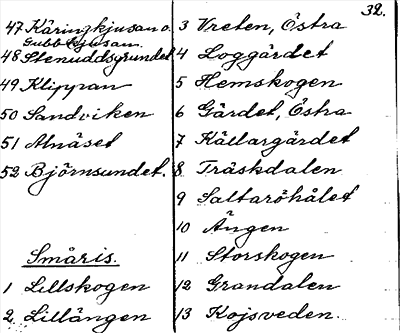 32.
47 Käringkjusan o.
Gubbkjusan.
48 Stenuddsgrundet
49 Klippan
50 Sandviken
51 Alnäset
52 Björnsundet.
Småris.
1 Lillskogen
2 Lillängen
3 Vreten, Östra
4 Loggärdet
5 Hemskogen
6 Gärdet, Östra
7 Källargärdet
8 Träskdalen
9 Saltaröhålet
10 Ängen
11 Storskogen
12 Grandalen
13 Kojsveden.